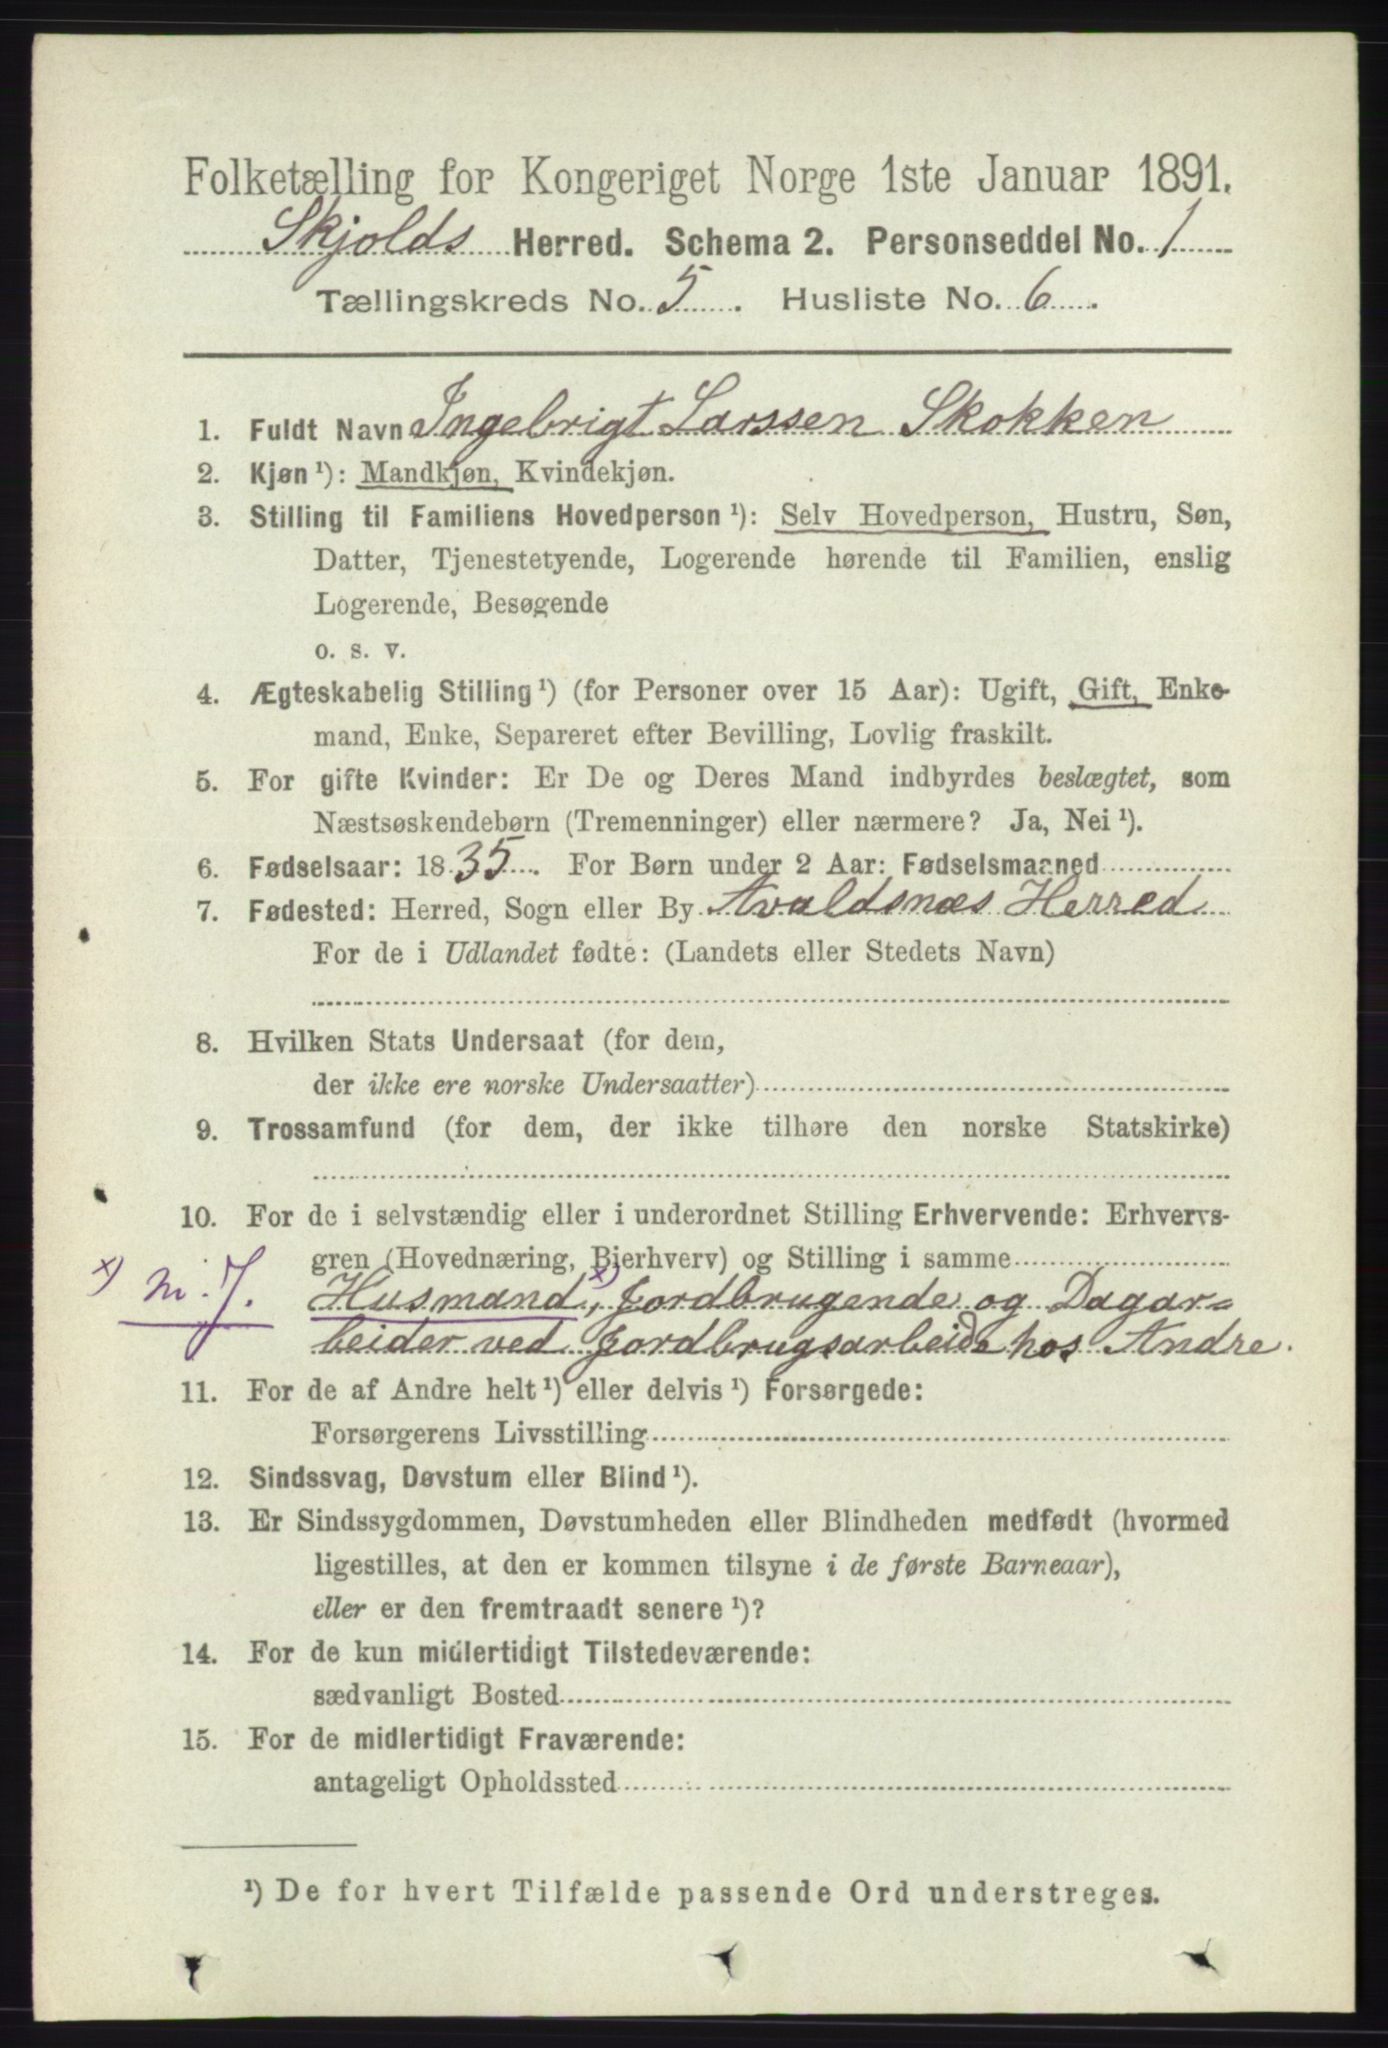 Folketælling for Kongeriget Norge 1ste Januar 1891.
Skjolds Herred. Schema 2. Personseddel No. 1
Tællingskreds No. 5. Husliste No. 6.
1. Fuldt Navn Ingebrigt Larssen Skokken
2. Kjøn ¹): Mandkjøn, Kvindekjøn.
3. Stilling til Familiens Hovedperson ¹): Selv Hovedperson, Hustru, Søn,
Datter, Tjenestetyende, Logerende hørende til Familien, enslig
Logerende, Besøgende
o. s. v.
4. Ægteskabelig Stilling ¹) (for Personer over 15 Aar): Ugift, Gift, Enke-
mand, Enke, Separeret efter Bevilling, Lovlig fraskilt.
5. For gifte Kvinder: Er De og Deres Mand indbyrdes beslægtet, som
Næstsøskendebørn (Tremenninger) eller nærmere? Ja, Nei ¹).
6. Fødselsaar: 1835. For Børn under 2 Aar: Fødselsmaaned
7. Fødested: Herred, Sogn eller By Avaldsnæs Herred
For de i Udlandet fødte: (Landets eller Stedets Navn)
8. Hvilken Stats Undersaat (for dem,
der ikke ere norske Undersaatter)
9. Trossamfund (for dem, der ikke tilhøre den norske Statskirke)
10. For de i selvstændig eller i underordnet Stilling Erhvervende: Erhvervs-
gren (Hovednæring, Bierhverv) og Stilling i samme
x) m. J. Husmand x), Jordbrugende og Dagar=
beider ved Jordbrugsarbeide hos Andre.
11. For de af Andre helt ¹) eller delvis ¹) Forsørgede:
Forsørgerens Livsstilling
12. Sindssvag, Døvstum eller Blind ¹).
13. Er Sindssygdommen, Døvstumheden eller Blindheden medfødt (hvormed
ligestilles, at den er kommen tilsyne i de første Barneaar),
eller er den fremtraadt senere ¹)?
14. For de kun midlertidigt Tilstedeværende:
sædvanligt Bosted
15. For de midlertidigt Fraværende:
antageligt Opholdssted
¹) De for hvert Tilfælde passende Ord understreges.